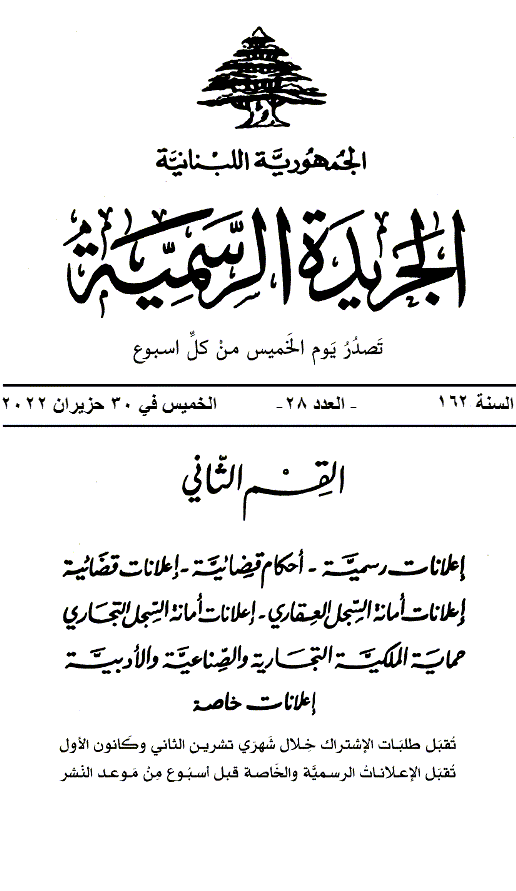 الجُمهُوريَّة اللبْنانيَّة
الجَريدَة الرسَّمِيَّة
تَصدُرُ يَوم الخَميس منْ كلِّ اسبوع
السنة ١٦٢ - العدد ٢٨ - الخميس في ٣٠ حزيران ٢٠٢٢
القِسْم الثَّاني
إعلانات رسميَّة - أحكام قضائيَّة - إعلانات قضائية
إعلانات أمانة السِّجل العقاري - إعلانات أمانة السِّجل التجاري
حماية الملكيَّة التجارية والصِّناعيَّة والأدبيَّة
إعلانات خاصة
تُقبَل طلبَات الإشتراك خِلال شَهرَي تشرين الثاني وكَانون الأول
تُقبَل الإعلاناتُ الرسميَّة والخَاصة قبل أسبُوع مِنْ مَوعد النّشر